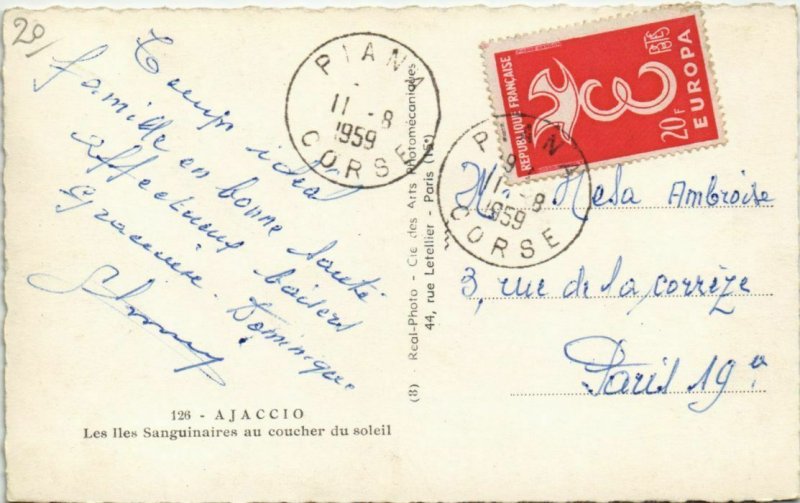 20
Temps idéal
famille en bonne santé
affectueux baisers
Dominique
126 - AJACCIO
Les Iles Sanguinaires au coucher du soleil
(8) - Real-Photo - Cie des Arts Photomécaniques
44, rue Letellier - Paris (15e)
PIANA
11 - 8
1959
CORSE
REPUBLIQUE FRANÇAISE
20F
EUROPA
PIANA
9
11 - 8
1959
CORSE
Ambroise
3, rue de la corrèze
Paris 19e